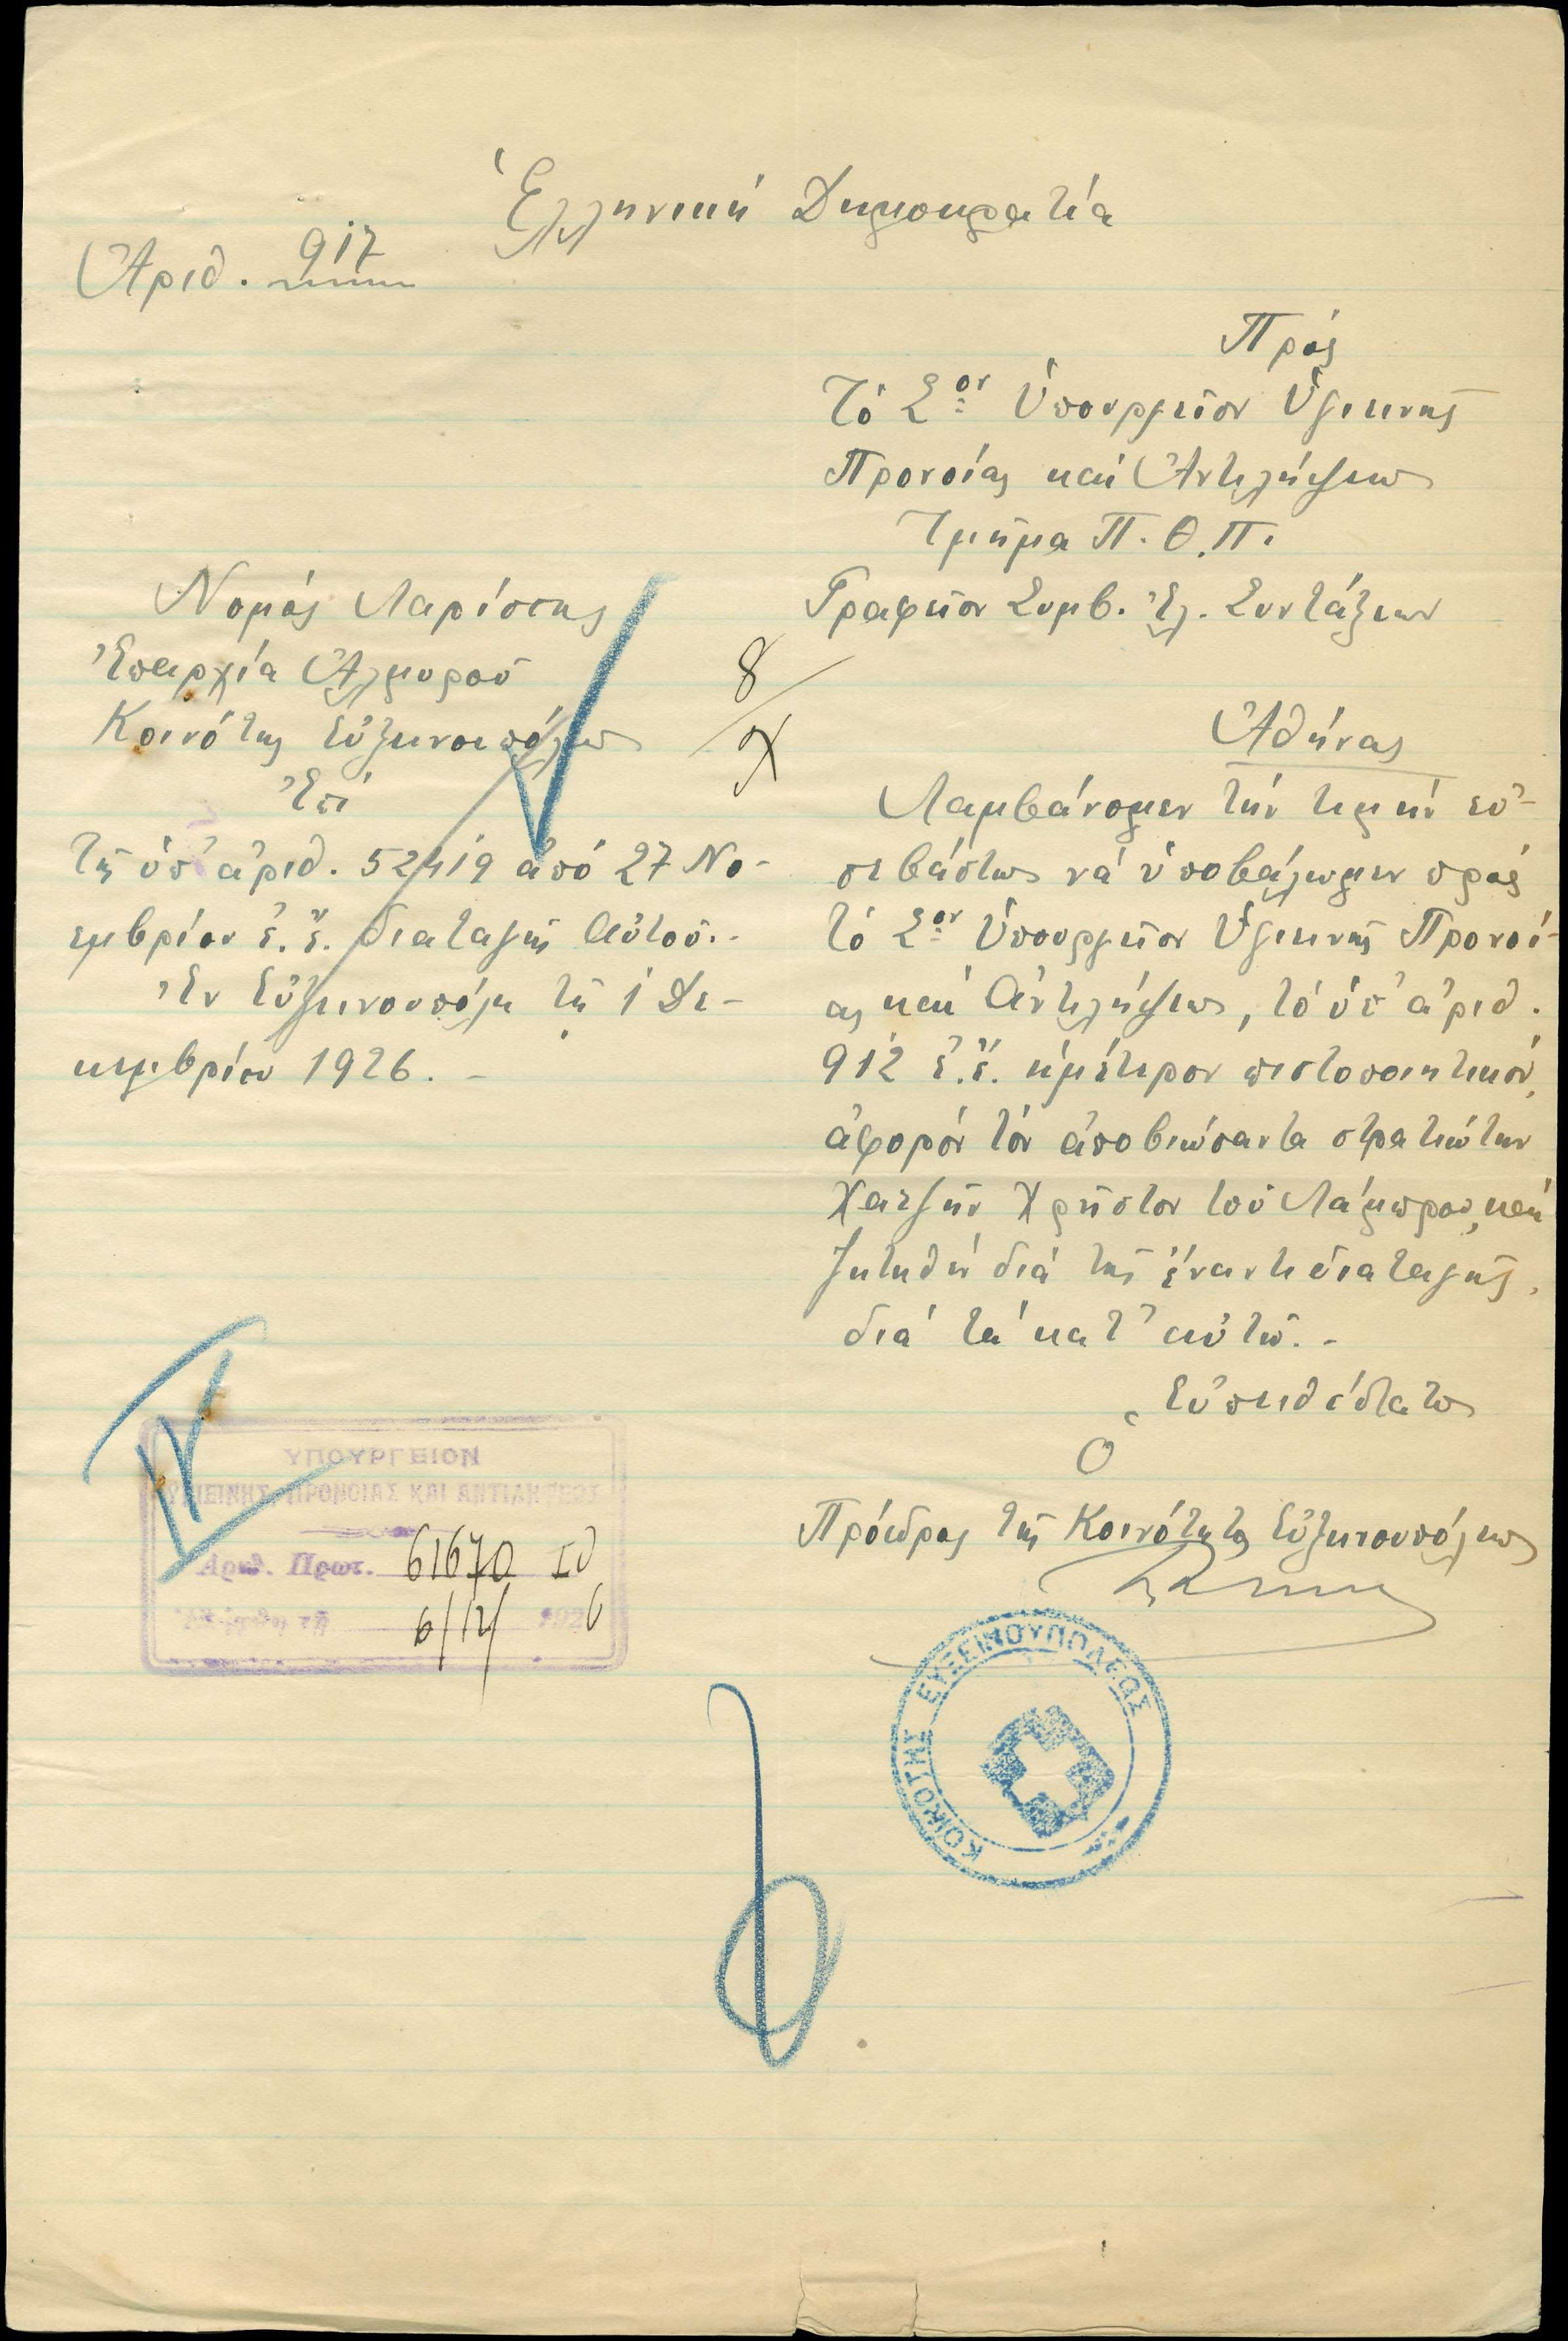 Ἑλληνική Δημοκρατία
Ἀριθ. 917
Πρός
Τό Σον Ὑπουργεῖον Ὑγιεινῆς
Προνοίας καί Ἀντιλήψεως
Τμῆμα Π.Θ.Π.
Γραφεῖον Συμβ. Ἐλ. Συντάξεων
Ἀθήνας
Νομός Λαρίσσης
Ἐπαρχία Ἁλμυροῦ
Κοινότης Εὐξεινουπόλεως
Ἐπί
τῆς ὑπ' ἀριθ. 52419 ἀπό 27 Νο-
εμβρίου ἐ.ἔ. διαταγῆς Αὐτοῦ.-
Ἐν Εὐξεινουπόλει τῇ 1 Δε-
κεμβρίου 1926.-
8
Χ
Λαμβάνομεν τήν τιμήν εὐ-
σεβάστως νά ὑποβάλωμεν πρός
τό Σον Ὑπουργεῖον Ὑγιεινῆς Προνοί-
ας καί Ἀντιλήψεως, τό ὑπ' ἀριθ.
912 ἐ.ἔ. ἡμέτερον πιστοποιητικόν,
ἀφορόν τόν ἀποβιώσαντα στρατιώτην
Χατζῆν Χρῆστον τοῦ Λάμπρου, καί
ζητηθέν διά τῆς ἔναντι διαταγῆς,
διά τά κατ' αὐτό.-
Εὐπειθέστατος
Ὁ
Πρόεδρος τῆς Κοινότητος Εὐξεινουπόλεως
ΚΟΙΝΟΤΗΣ ΕΥΞΕΙΝΟΥΠΟΛΕΩΣ
ΥΠΟΥΡΓΕΙΟΝ
ΥΓΙΕΙΝΗΣ ΠΡΟΝΟΙΑΣ ΚΑΙ ΑΝΤΙΛΗΨΕΩΣ
Αριθ. Πρωτ. 61670
6/12/ 1926